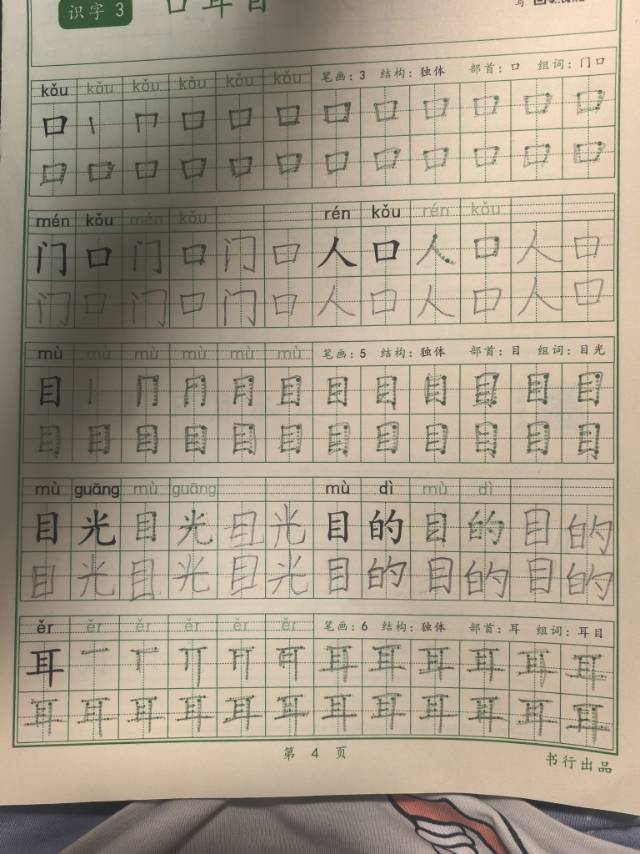 识字 3 口耳目
kǒu kǒu kǒu kǒu kǒu kǒu 笔画:3 结构:独体 部首:口 组词:门口
口 丨 冂 口 口 口 口 口 口 口 口 口
口 口 口 口 口 口 口 口 口 口 口 口
mén kǒu mén kǒu rén kǒu rén kǒu
门 口 门 口 门 口 人 口 人 口 人 口
门 口 门 口 门 口 人 口 人 口 人 口
mù mù mù mù mù mù 笔画:5 结构:独体 部首:目 组词:目光
目 丨 冂 月 月 目 目 目 目 目 目 目
目 目 目 目 目 目 目 目 目 目 目 目
mù guāng mù guāng mù dì mù dì
目 光 目 光 目 光 目 的 目 的 目 的
目 光 目 光 目 光 目 的 目 的 目 的
ěr ěr ěr ěr ěr ěr 笔画:6 结构:独体 部首:耳 组词:耳目
耳 一 丅 丌 耳 耳 耳 耳 耳 耳 耳
耳 耳 耳 耳 耳 耳 耳 耳 耳 耳 耳 耳
第 4 页
书行出品